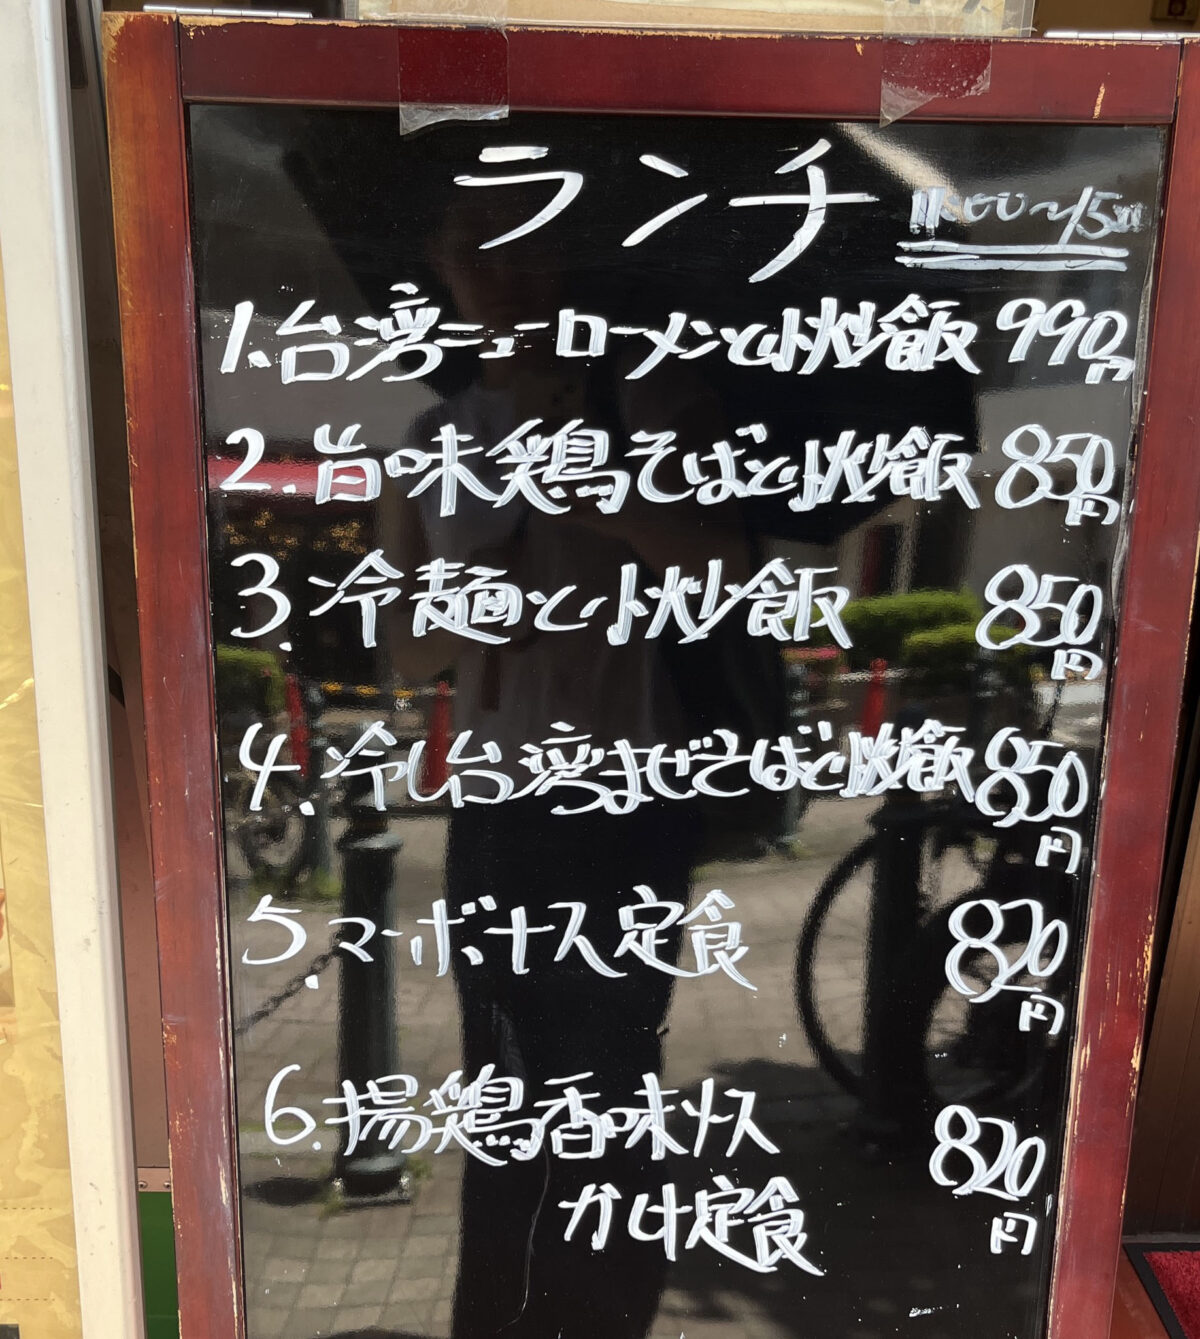 ランチ 11:00〜15:00
1.台湾ニューローメンと小炒飯 990円
2.旨味鶏そばと小炒飯 850円
3.冷麺と小炒飯 850円
4.冷し台湾まぜそばと小炒飯 850円
5.マーボナス定食 820円
6.揚鶏香味ソース
かけ定食 820円